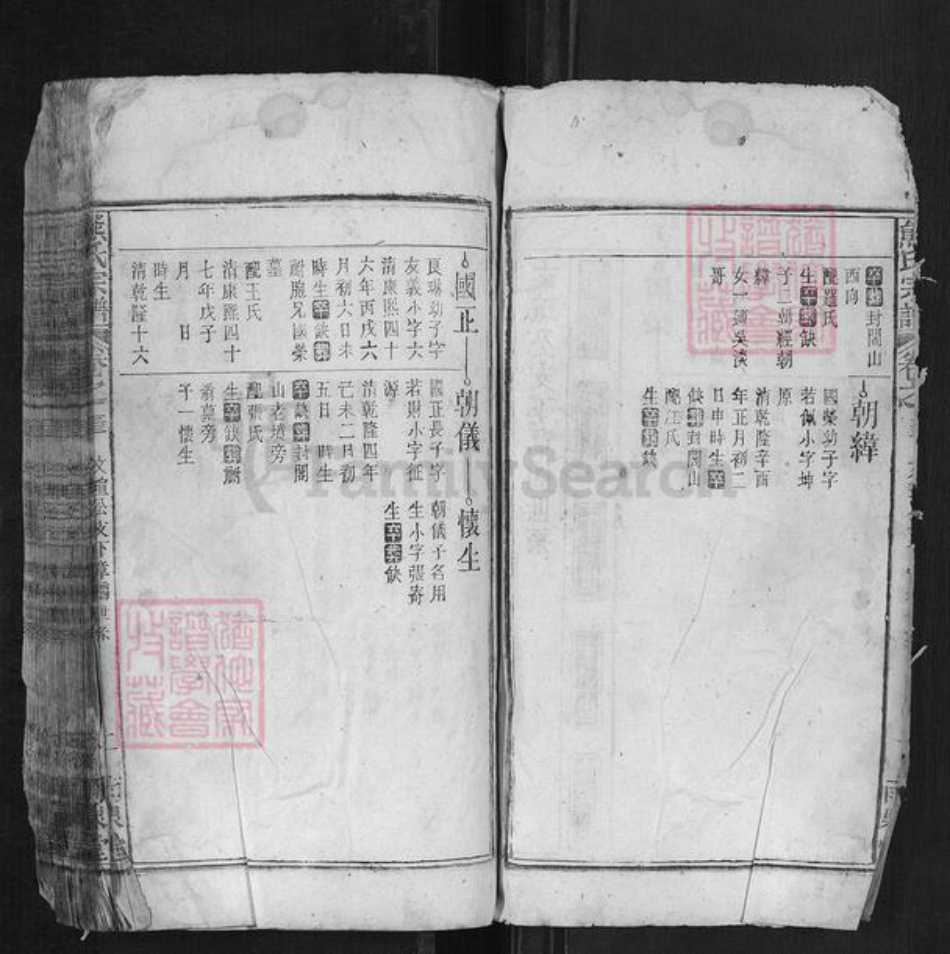 卒葬封閣山
西向
配羅氏
生卒葬缺
子二朝經朝
緯
女一適吳淡
哥
朝緯
國榮幼子字
若佩小字坤
原
清乾隆辛酉
年正月初二
日申時生卒
缺葬封閣山
配汪氏
生卒葬缺
國正
良璵幼子字
友義小字六
清康熙四十
六年丙戌六
月初六日未
時生卒缺葬
祔胞兄國榮
墓
配王氏
清康熙四十
七年戊子
月 日
時生
清乾隆十六
朝儀
國正長子字
若財小字征
源
清乾隆四年
己未二月初
五日 時生
卒缺葬封閣
山老墳旁
配張氏
生卒缺葬祔
翁墓旁
子一懷生
懷生
朝儀子名用
生小字張寄
生卒葬缺
熊氏宗譜
FamilySearch